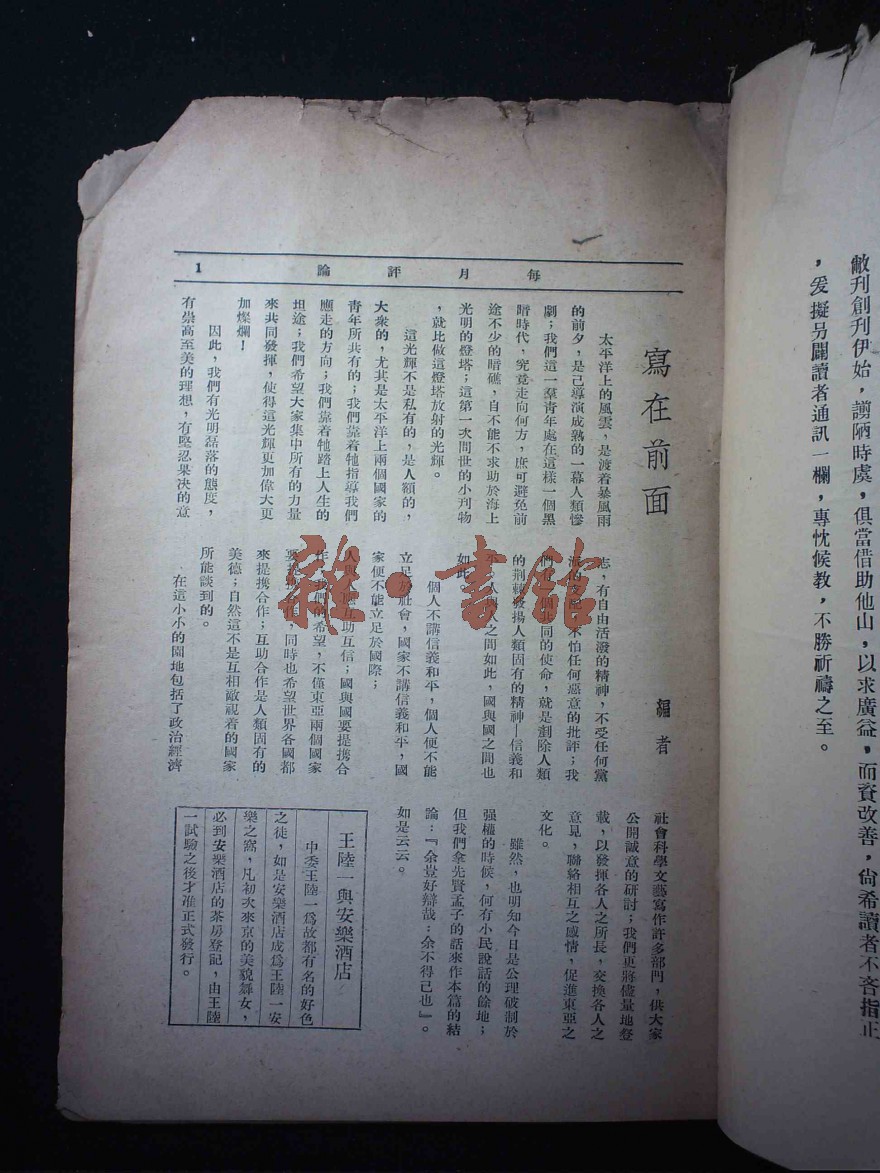 敝刊創刊伊始，謭陋時虞，俱當借助他山，以求廣益，而資改善，尙希讀者不吝指正
，爰擬另闢讀者通訊一欄，專忱候敎，不勝祈禱之至。
每月評論
1
寫在前面
編者
太平洋上的風雲，是渡着暴風雨
的前夕，是已導演成熟的一幕人類慘
劇；我們這一羣靑年處在這樣一個黑
暗時代，究竟走向何方，庶可避免前
途不少的暗礁，自不能不求助於海上
光明的燈塔；這第一次問世的小刋物
，就比做這燈塔放射的光輝。
這光輝不是私有的，是人類的，
大衆的，尤其是太平洋上兩個國家的
靑年所共有的；我們靠着牠指導我們
應走的方向；我們靠着牠踏上人生的
坦途；我們希望大家集中所有的力量
來共同發揮，使得這光輝更加偉大更
加燦爛！
因此，我們有光明磊落的態度，
有崇高至美的理想，有堅忍果决的意
志，有自由活潑的精神，不受任何黨
派的支配，不怕任何惡意的批評；我
們一個共同的使命，就是剷除人類
的荆棘發揚人類固有的精神—信義和
人與人之間如此，國與國之間也
如此，
個人不講信義和平，個人便不能
立足於社會，國家不講信義和平，國
家便不能立足於國際；
人與人應互助互信；國與國要提携合
作，我們的希望，不僅東亞兩個國家
要提携合作，同時也希望世界各國都
來提携合作；互助合作是人類固有的
美德；自然這不是互相敵視着的國家
所能談到的。
在這小小的園地包括了政治經濟
社會科學文藝寫作許多部門，供大家
公開誠意的研討；我們更將儘量地登
載，以發揮各人之所長，交換各人之
意見，聯絡相互之感情，促進東亞之
文化。
雖然，也明知今日是公理破制於
强權的時候，何有小民說話的餘地；
但我們拿先賢孟子的話來作本篇的結
論：『余豈好辯哉；余不得已也』。
如是云云。
王陸一與安樂酒店
中委王陸一爲故都有名的好色
之徒，如是安樂酒店成爲王陸一安
樂之窩，凡初次來京的美貌舞女，
必到安樂酒店的茶房登記，由王陸
一試驗之後才准正式發行。
雜·書館